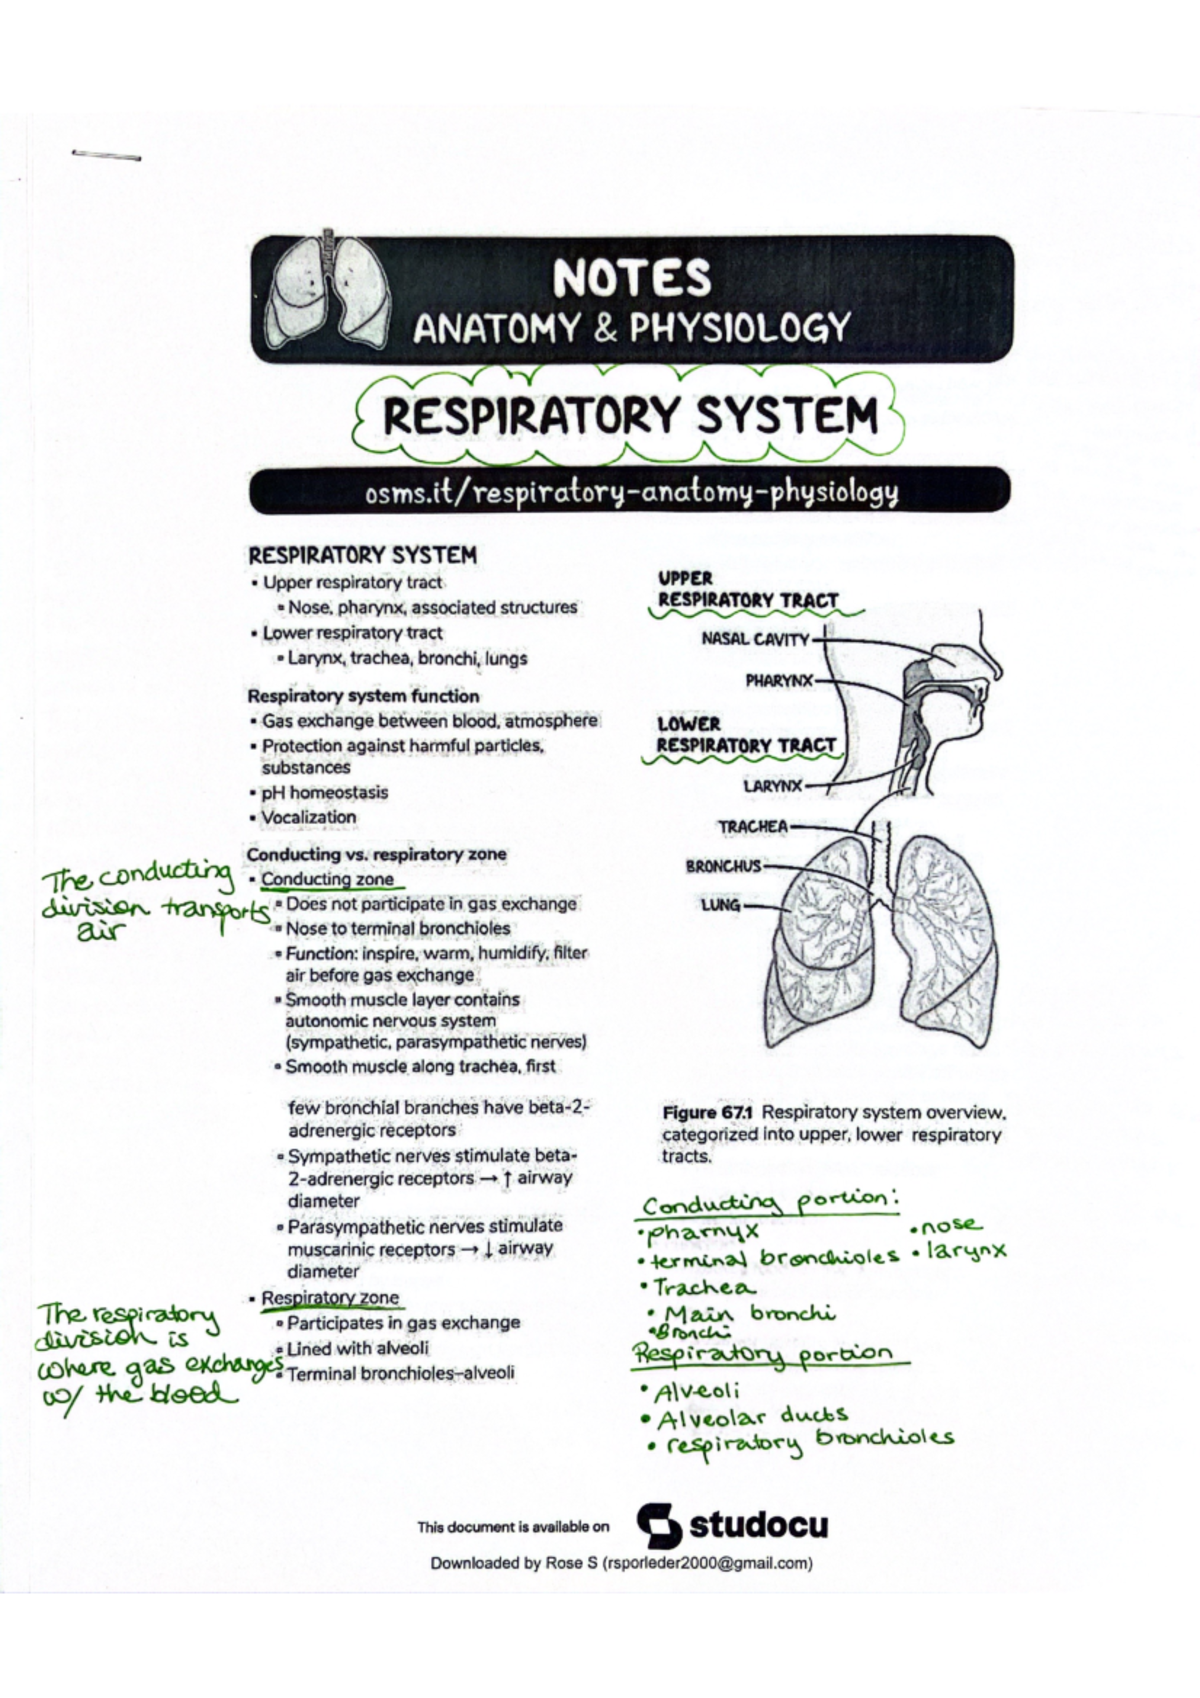 NOTES
ANATOMY & PHYSIOLOGY
RESPIRATORY SYSTEM
osms.it/respiratory-anatomy-physiology
RESPIRATORY SYSTEM
▪ Upper respiratory tract
▫ Nose, pharynx, associated structures
▪ Lower respiratory tract
▫ Larynx, trachea, bronchi, lungs
Respiratory system function
▪ Gas exchange between blood, atmosphere
▪ Protection against harmful particles,
substances
▪ pH homeostasis
▪ Vocalization
Conducting vs. respiratory zone
▪ Conducting zone
▫ Does not participate in gas exchange
▫ Nose to terminal bronchioles
▫ Function: inspire, warm, humidify, filter
air before gas exchange
▫ Smooth muscle layer contains
autonomic nervous system
(sympathetic, parasympathetic nerves)
▫ Smooth muscle along trachea, first
few bronchial branches have beta-2-
adrenergic receptors
▫ Sympathetic nerves stimulate beta-
2-adrenergic receptors → ↑ airway
diameter
▫ Parasympathetic nerves stimulate
muscarinic receptors → ↓ airway
diameter
▪ Respiratory zone
▫ Participates in gas exchange
▫ Lined with alveoli
▫ Terminal bronchioles–alveoli
The conducting
division transports
air
The respiratory
division is
where gas exchanges
w/ the blood
UPPER
RESPIRATORY TRACT
NASAL CAVITY
PHARYNX
LOWER
RESPIRATORY TRACT
LARYNX
TRACHEA
BRONCHUS
LUNG
Figure 67.1 Respiratory system overview,
categorized into upper, lower respiratory
tracts.
Conducting portion:
• pharnyx • nose
• terminal bronchioles • larynx
• Trachea
• Main bronchi
• Bronchi
Respiratory portion
• Alveoli
• Alveolar ducts
• respiratory bronchioles
This document is available on studocu
Downloaded by Rose S (rsporleder2000@gmail.com)